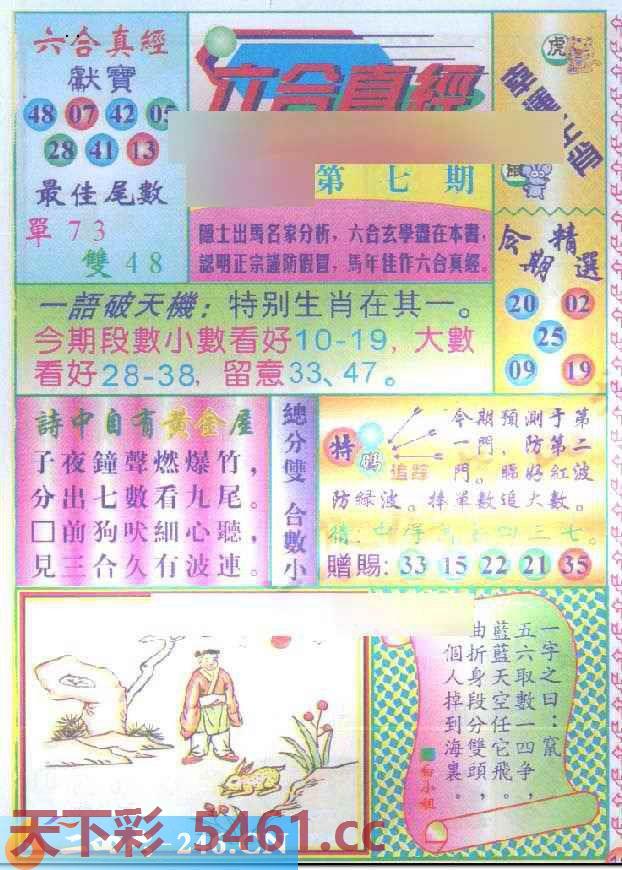 六合真經
獻寶
48 07 42 05
28 41 13
最佳尾數
單 7 3
雙 4 8
六合真經
第七期
隱士出馬名家分析，六合玄學盡在本書，
認明正宗謹防假冒，馬年佳作六合真經。
虎
鼠
今期精選
20 02
25
09 19
一語破天機：特别生肖在其一。
今期段數小數看好10-19，大數
看好28-38，留意33、47。
詩中自有黃金屋
子夜鐘聲燃爆竹，
分出七數看九尾。
□前狗吠細心聽，
見三合久有波連。
總分雙 合數小
特碼
追踪
今期預測于第
一門，防第二
門。睇好紅波
防緑波。捧單數追大數。
四三七。
贈賜：33 15 22 21 35
一字之曰：竄
五六取數一四争，
藍藍天空任它飛。
曲折身段分雙頭，
個人掉到海裏。
白小姐
天下彩 5461.cc
246.CN